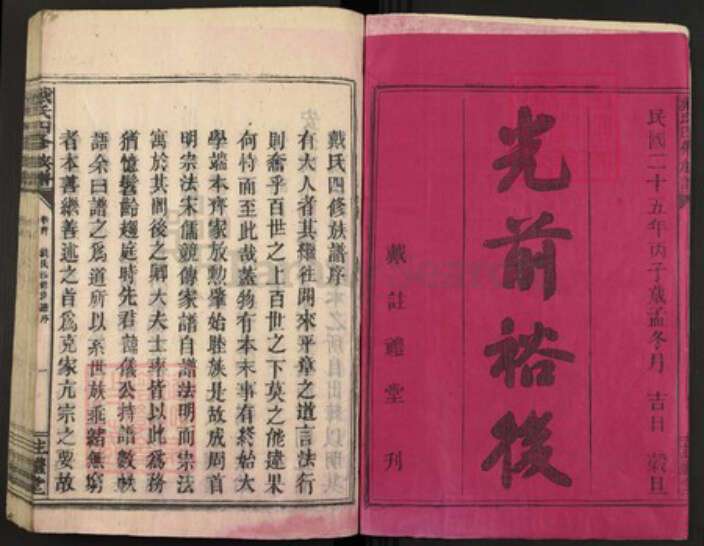 民國二十五年丙子歲孟冬月 吉日 穀旦
光前裕後
戴註禮堂刊
戴氏四修族譜序
有大人者其繼往開來平章之道言法行
則奮乎百世之上百世之下莫之能違果
何特而至此哉蓋物有本末事有終始大
學端本齊家放勲肇始睦族是故成周首
明宗法宋儒競傳家譜自譜法明而宗法
寓於其間後之卿大夫士率皆以此為務
猶憶髫齡趨庭時先君 儀公持語數帙
語余曰譜之為道所以系世族乖緒無窮
者本善繼善述之首為克家亢宗之要故
戴氏四修族譜
卷首 戴氏四修族譜序 一
註禮堂